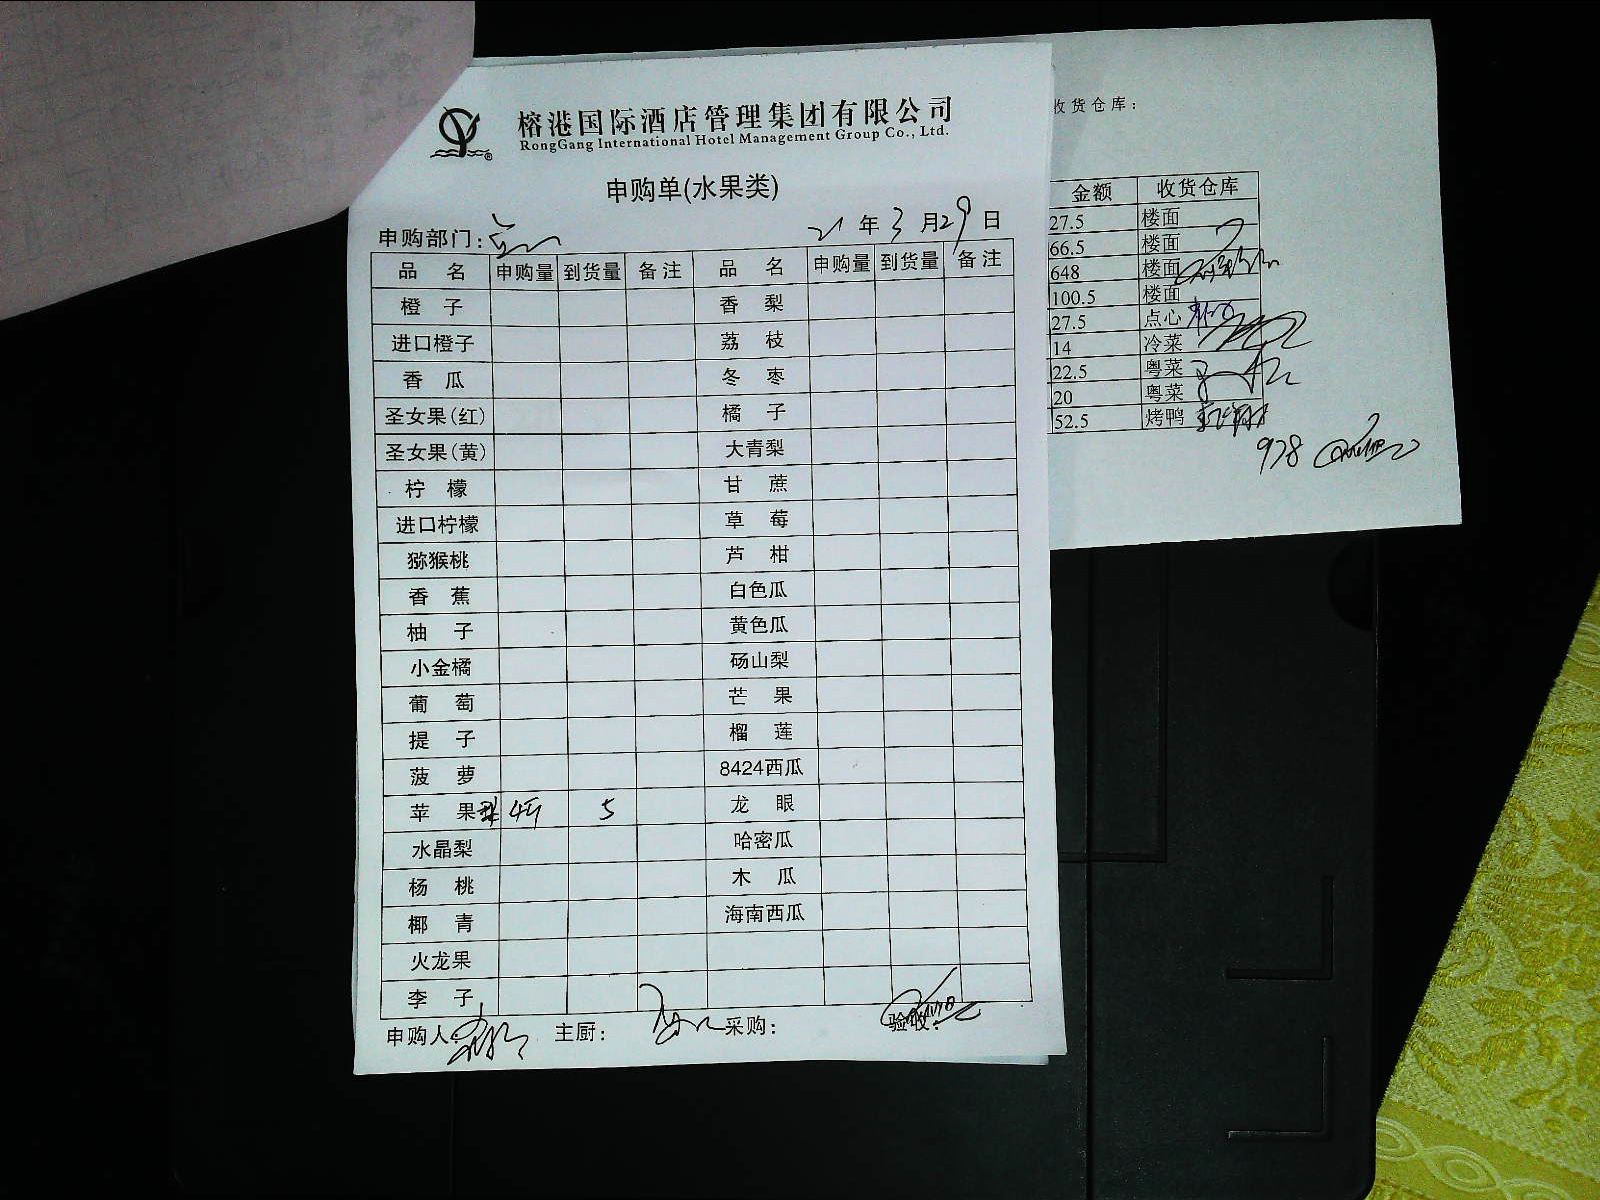 榕港国际酒店管理集团有限公司
RongGang International Hotel Management Group Co., Ltd.
申购单(水果类)
申购部门: 21年3月29日
品名 申购量 到货量 备注 品名 申购量 到货量 备注
橙子 香梨
进口橙子 荔枝
香瓜 冬枣
圣女果(红) 橘子
圣女果(黄) 大青梨
柠檬 甘蔗
进口柠檬 草莓
猕猴桃 芦柑
香蕉 白色瓜
柚子 黄色瓜
小金橘 砀山梨
葡萄 芒果
提子 榴莲
菠萝 8424西瓜
苹果 4斤 5 龙眼
水晶梨 哈密瓜
杨桃 木瓜
椰青 海南西瓜
火龙果
李子
申购人: 主厨: 采购: 验收:
收货仓库:
金额 收货仓库
27.5 楼面
66.5 楼面
648 楼面
100.5 楼面
27.5 点心
14 冷菜
22.5 粤菜
20 粤菜
52.5 烤鸭
978